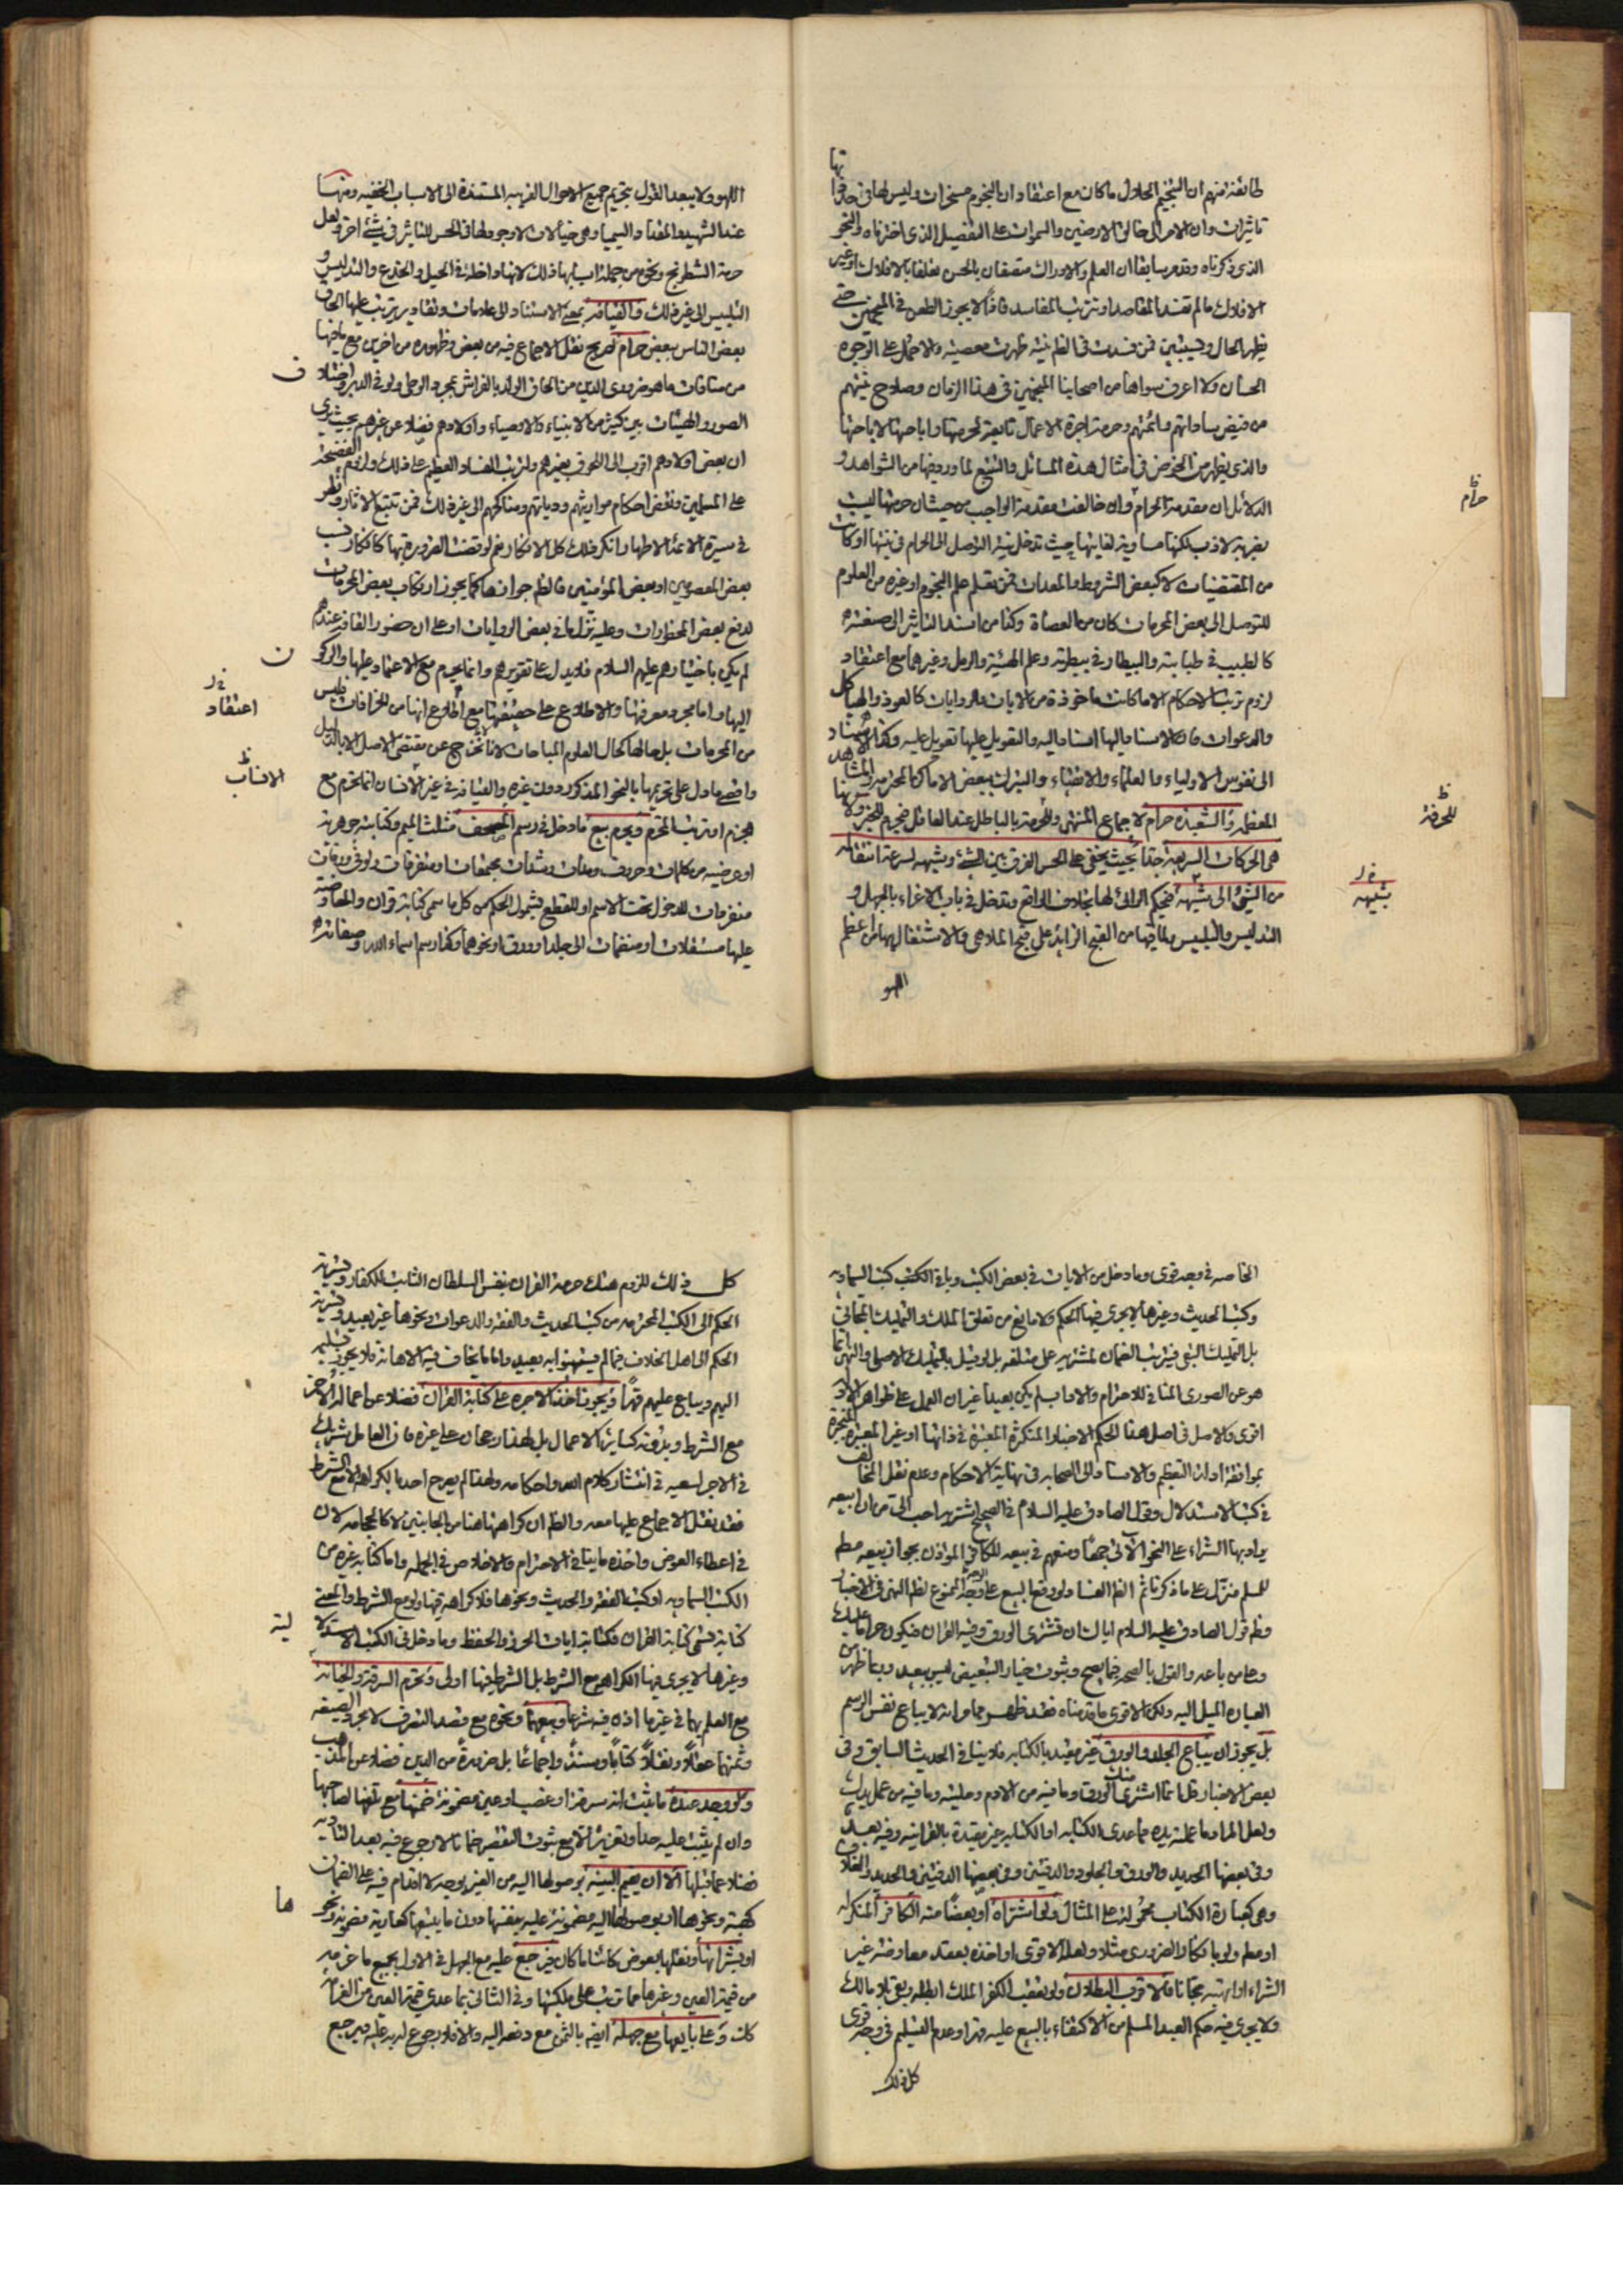 طائفة منهم ان التنجيم الحلال ما كان مع اعتقاد ان النجوم مسخرات وليس لها في حد ذاتها
تاثيرات وان الامر الى خالق الارضين والسموات على التفصيل الذى اخترناه والنحو
الذى ذكرناه وقد مر سابقا ان العلم والادراك متصفان بالحسن تعلقا بالافلاك او غير
الافلاك ما لم تفسد المقاصد او تترتب المفاسد فاذًا لا يجوز الطعن في المنجمين حتى
يظهر الحال ويستبين فمن فسدت في الظاهر نيته ظهرت معصيته والا حمل على الوجوه
الحسان ولا اعرف سواها من اصحابنا المنجمين في هذا الزمان وصلاح نيتهم
من فيض ساداتهم وائمتهم وحرمة اجرة الاعمال تابعة لحرمتها واباحتها لاباحتها
والذى يظهر من الخوض في امثال هذه المسائل والتتبع لما ورد فيها من الشواهد و
الدلائل ان مقدمة الحرام وان خالفت مقدمة الواجب من حيث ان حرمتها ليست
بضربة لازب لكنها مساوية لغايتها حيث تدخل نية التوصل الى الحرام في نيتها او كانت
من المقتضيات لا كبعض الشروط والمعدات فمن تعلم علم النجوم او غيره من العلوم
للتوصل الى بعض المحرمات كان من العصاة وكذا من اسند التاثير الى صنعته
كالطبيب في طبابته والبيطار في بيطرته وعلم الهيئة والرمل وغيرهما مع اعتقاد
لزوم ترتب الاحكام الا ما كانت ماخوذة من الايات والروايات كالعوذ والهياكل
والدعوات فان الاستناد اليها استناد اليه والتعويل عليها تعويل عليه وكذا الاستناد
الى نفوس الاولياء والعلماء والاتقياء والتبرك ببعض الاماكن المحترمة والمشاهد
المعظمة والشعبذة حرام للاجماع المنتهى وللحرفة بالباطل عند العاقل فيحرم
هي الحركات السريعة جدًا بحيث يخفى على الحس الفرق بين الشئ وشبهه لسرعة انتقاله
من الشئ الى شبهه فيحكم الرائى لها بخلاف الواقع وتدخل في باب الاغراء بالجهل و
التدليس والتلبيس ولما فيها من القبح الزائد على قبح الملاهي والاشتغال بها من اعظم
اللهو
حرام ظ
للحرفة ظ
شبهه
اللهو ولا يبعد القول بتحريم جميع الاحوال الغريبه المستندة الى الاسباب الخفيه ومنها
عند الشهيد والمقداد السيميا وهي خيالات لا وجود لها في الحس للتاثير في شئ اخر ولعل
حرمة الشطرنج ونحوه من جملة اسبابها ذلك لانها داخلة في الحيل والخدع والتدليس و
التلبيس الى غير ذلك والقيافة بمعنى الاستناد الى علامات ومقادير يترتب عليها الحاق
بعض الناس ببعض حرام لصريح نقل الاجماع فيه من بعض وظهوره من اخرين مع ما فيها
من منافات ما هو ضرورى الدين من الحاق الولد بالفراش بمجرد الوطي ولو في الدبر واختلاف
الصور والهيئات بين كثير من الانبياء والاوصياء واولادهم فضلا عن غيرهم بحيث يرى
ان بعض اولادهم اقرب الى اللحوق بغيرهم ولترتب الفساد العظيم على ذلك ولزوم الفضيحة
على المسلمين ونقض احكام مواريثهم ودياتهم ومناكحهم الى غير ذلك فمن تتبع الاثار ونظر
في سيرة الائمة الاطهار انكر ذلك كل الانكار نعم لو قضت الضرورة بها كانكار نسب
بعض المعصومين او بعض المؤمنين فالظاهر جوازها كما يجوز ارتكاب بعض المحرمات
لدفع بعض المحظورات وعليه تنزل ما في بعض الروايات او على ان حضور القافة عندهم
لم يكن باختيارهم عليهم السلام فلا يدل على تقريرهم وانما يحرم مع الاعتماد عليها والركون
اليها واما مجرد معرفتها والاطلاع على حقيقتها مع اطلاع انها من الخرافات فليس
من المحرمات بل حالها كحال العلوم المباحات لانا لا نخرج عن مقتضى الاصل الا بالدليل
واقصى ما دل على تحريمها بالنحو المذكور دون غيره والقيافة في غير الانسان انما تحرم مع
الجزم او ترتب المحرم ويحرم بيع ما دخل في رسم المصحف مثلث الميم وكتابته جوهرية
او عرضيه من كلمات وحروف ومدات وشدات مجتمعات او متفرقات ولو في ورقات
متفرقات لدخول تحت الاسم او للقطع بشمول الحكم من كل ما سمى كتابة قران والمعاوضة
عليها مستقلات او منضمات الى جلد او ورق او نحوهما وكذا رسم اسماء الله وصفاته
ف
ن
اعتقاد
الانساب ظ
الخاصه في وجه قوى وما دخل من الايات في بعض الكتب وباقى الكتب كتب السماويه
وكتب الحديث وغيرها لا يجرى فيها الحكم ولا مانع من تعلق الملك والتمليك المجانى
بل التمليك التبعى فيترتب الضمان لمشتريه على متلفه بل لو قيل بالتمليك الاصلى والنهى انما
هو عن الصورى المنافى للاحترام والاداب لم يكن بعيدا غير ان العمل على ظواهر الادلة
اقوى والاصل في اصل هذا الحكم الاخبار المتكثرة المعتبرة في ذاتها او غير المعتبرة المنجبرة
بموافقة ادلة التعظيم والاسناد الى الصحابه في نهاية الاحكام وعدم نقل المخالف
في كتب الاستدلال وقول الصادق عليه السلام في الصحيح اشتريه احب الى من ان ابيعه
يراد بها الشراء على النحو الاتى جمعًا ومنعهم في بيعه للكافر الموذن بجواز بيعه مطلقا
للمسلم منزل على ما ذكرناه ثم الظاهر الفساد ولو وقع البيع على الوجه الممنوع لظاهر النهى في الاخبار
وظاهر قول الصادق عليه السلام اياك ان تشترى الورق وفيه القران فيكون حراما عليك
وعلى من باعه والقول بالصحه فيما يصح وبثبوت خيار التبعيض ليس ببعيد وربما ظهر من
العباره الميل اليه ولكن الاقوى ما قدمناه فقد ظهر مما مر انه لا يباع نفس الرسم
بل يجوز ان يباع الجلد والورق غير مقيد بالكتابه فلا ينافى الحديث السابق وفى
بعض الاخبار قل انما اشترى منك الورق وما فيه من الادم وحليته وما فيه من عمل يدك
ولعل المراد ما عملته يده مما عدى الكتابه او الكتابه غير مقيدة بالقرانيه وفيه بعد
وفى بعضها الحديد والورق والجلود والدفتين وفى بعضها الدفتين والحديد والغلاف
وهى كعبارة الكتاب محمولة على المثال ولو اشتراه او بعضًا منه الكافر المنكر له
او معلم ولو بانكار الضرورى مثلا ولعله الاقوى او اخذه بعقد معاوضة غير
الشراء او اتهبه مجانا فالاقرب البطلان ولو تعقب الكفر الملك ابطله وبقى بلا مالك
ولا يجرى فيه حكم العبد المسلم من الاكتفاء بالبيع عليه قهرا وعدم التسليم في وجه قوى
كل ذلك
كل ذلك للزوم هتك حرمة القران بنفس السلطان الثابت للكفار وتسرية
الحكم الى الكتب المحترمه من كتب الحديث والفقه والدعوات ونحوها غير بعيد وتسرية
الحكم الى اهل الخلاف فيما لم يستهينوا به بعيد واما ما يخاف فيه الاهانة فلا يجوز تسليمه
اليهم ويباع عليهم قهرًا ويجوز اخذ الاجره على كتابة القران فضلا عن اعماله الاخر
مع الشرط وبدونه كسائر الاعمال بل لهذا رجحان على غيره فان العامل شريك
في الاجر لسعيه في انتشار كلام الله واحكامه ولهذا لم يصرح احد بالكراهة الا مع الشرط
فقد نقل الاجماع عليها معه والظاهر ان كراهتها هنا من الجانبين لا كالحجامه لان
في اعطاء العوض واخذه ما ينافى الاحترام والاخلاص في الجمله واما كتابة غيره من
الكتب السماويه او كتب الفقه والحديث ونحوها فلا كراهة فيها ولو مع الشرط والمعنى
كتابة تسمى كتابة القران فكتابة ايات الحرز والحفظ وما دخل في الكتب الاستدلالية
وغيرها لا يجرى فيها الكراهة مع الشرط بل الشرط فيها اولى وتحرم السرقة والخيانة
مع العلم بهما في غير ما اذن فيه شرعا وبيعهما ونحوه مع قصد التصرف لا مجرد الصيغه
وثمنهما عقلًا ونقلًا كتابًا وسنةً واجماعًا بل ضرورة من الدين فضلا عن المذهب
ولو وجد عنده ما ثبت انه سرقة او غصب او عين مضمونة ضمنها مع تلفها لصاحبها
وان لم يثبت عليه حدا وتعزيرا الا مع ثبوت التقصير ضمانا لا رجوع فيه بعد التاديه
فضلا عما قبلها الا ان يقيم البينة بوصولها اليه من الغير بوجه لا اقدام فيه على الضمان
كهبة ونحوها او بوصولها اليه مضمونة عليه بنفسها دون ما يتبعها كعارية مضمونة ونحوها
او بشرائها ونقلها بعوض كائنًا ما كان فيرجع عليه مع الجهل في الاول بجميع ما غرمه
من قيمة العين وغيرها مما ترتب على ملكيتها وفى الثانى بما عدى قيمة العين من الغرامات
كان وعلى بايعها مع جهله ايضا بالثمن مع دفعه اليه والا فلا رجوع له به عليه ويرجع
لية
ها